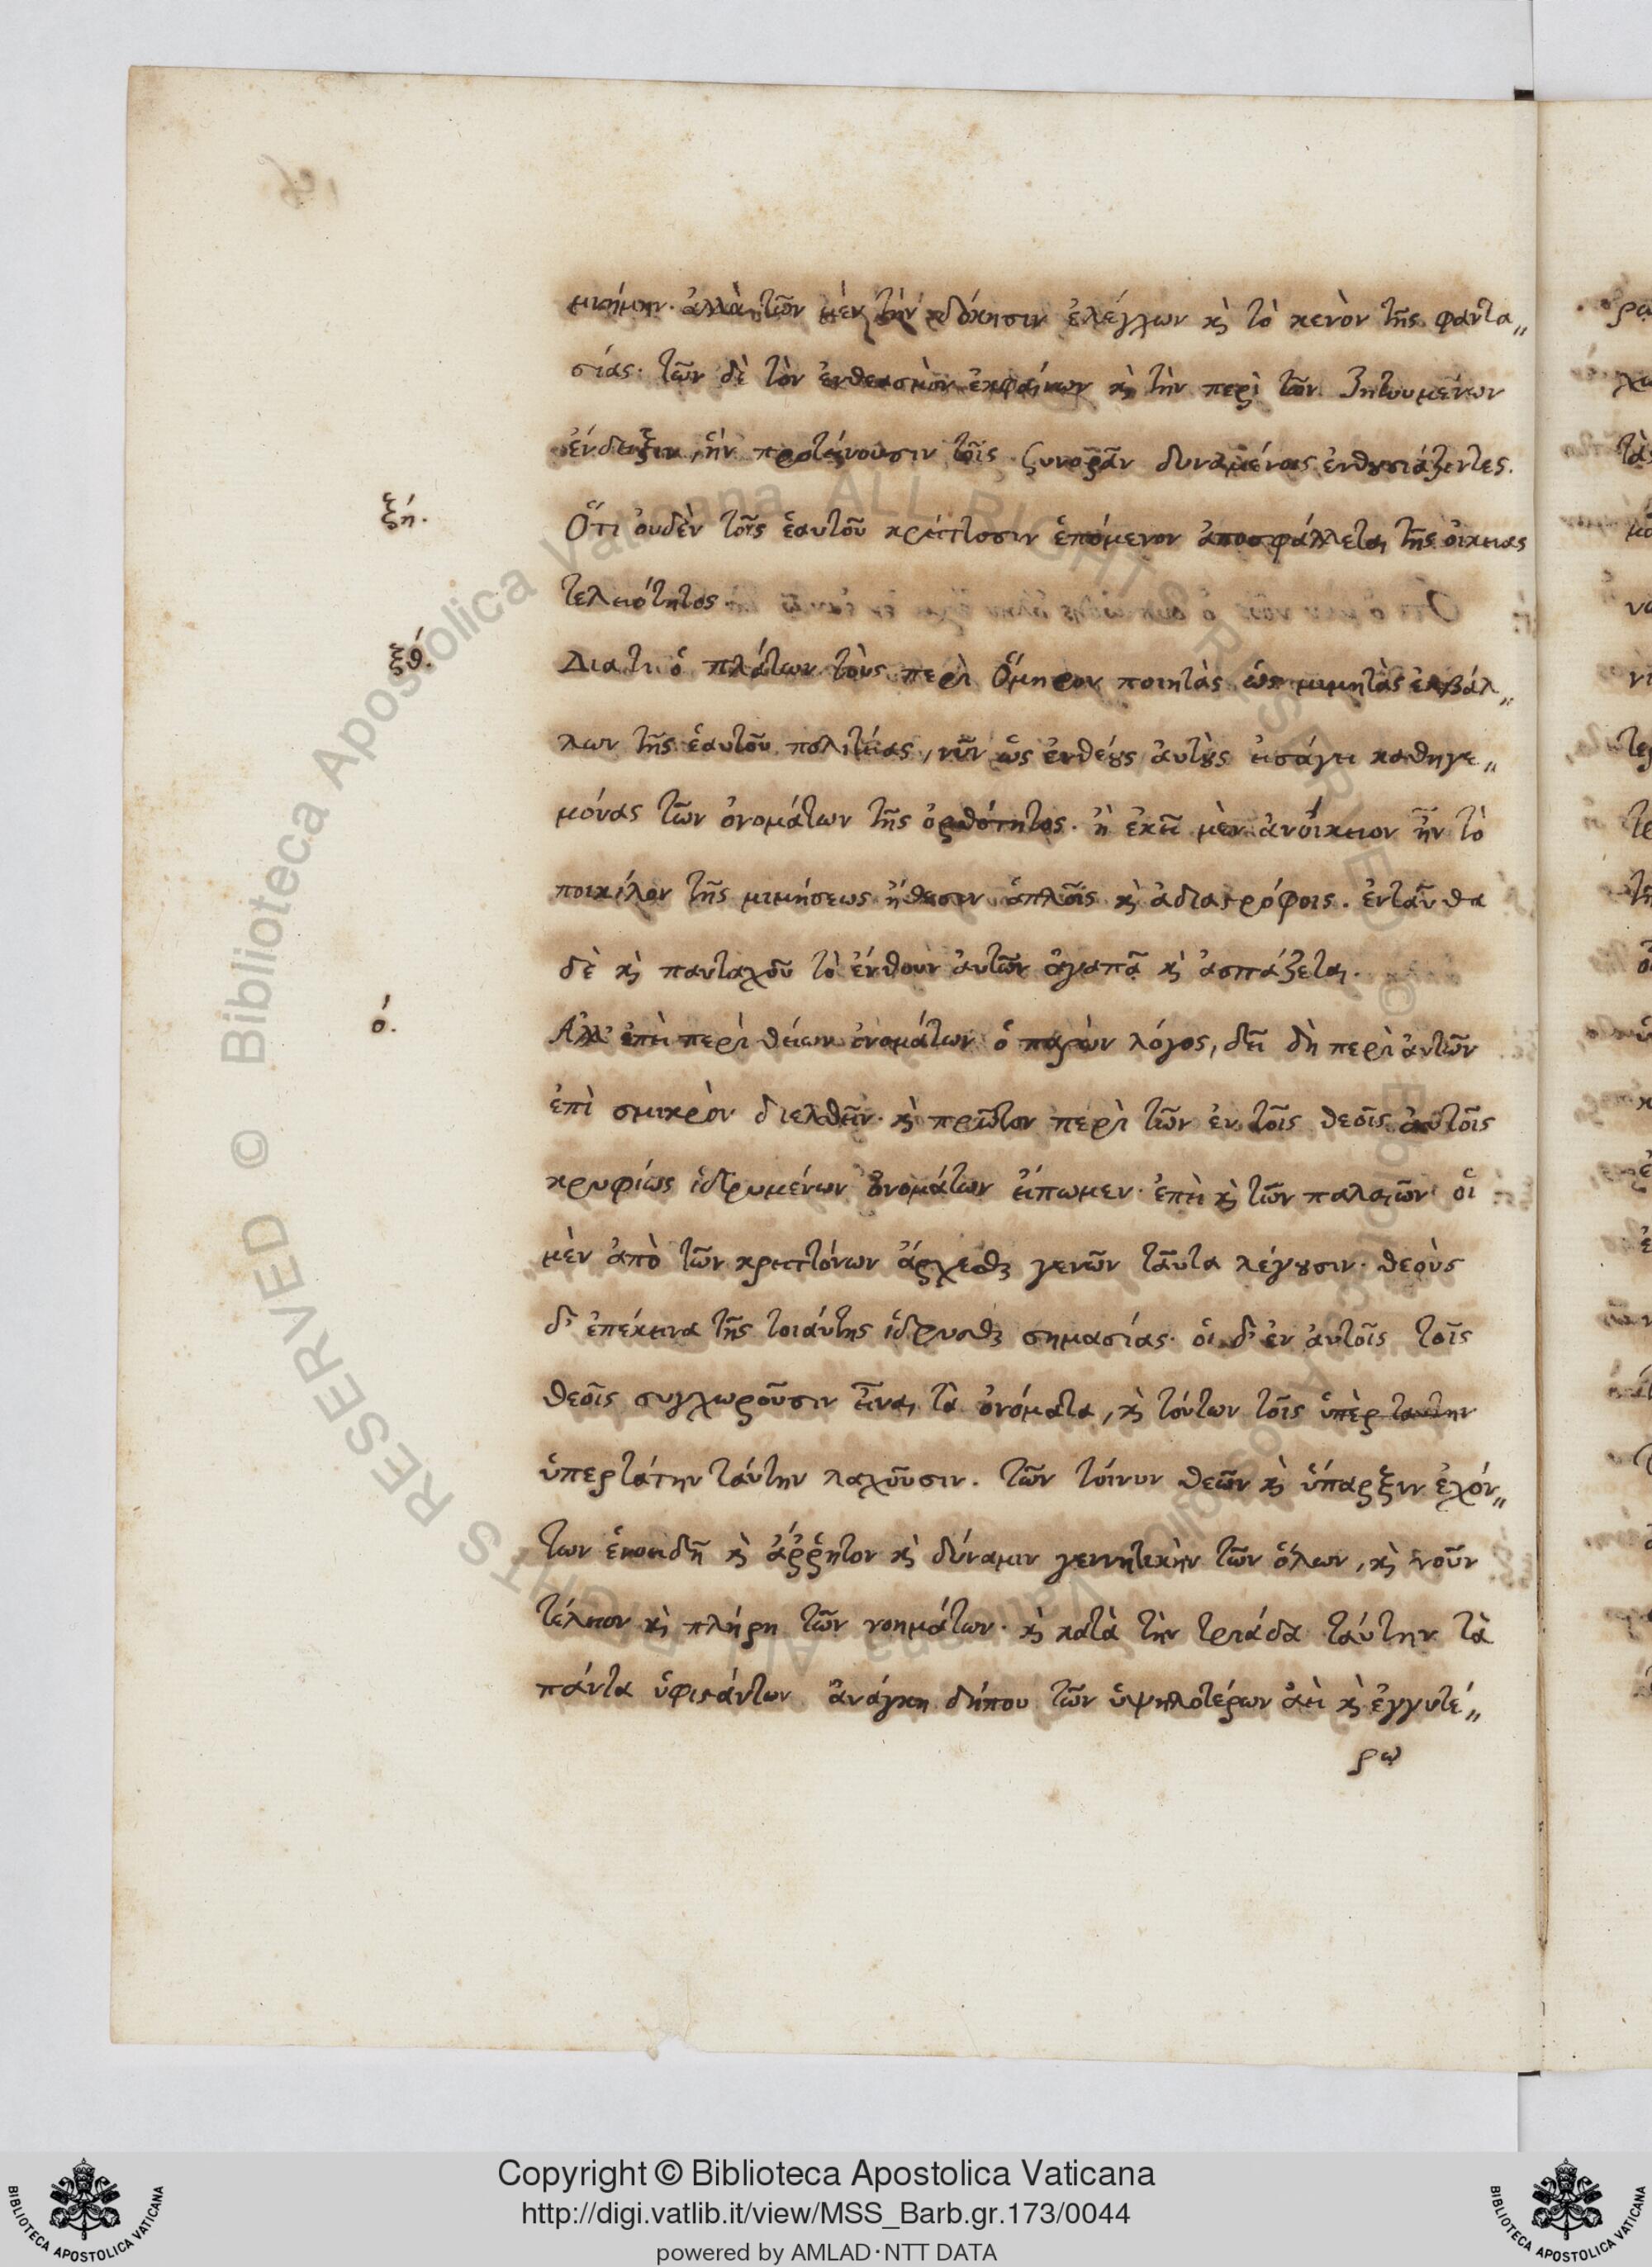 μνήμην. ἀλλὰ τῶν μὲν τὴν δόκησιν ἐλέγχων κὶ τὸ κενὸν τῆς φαντα„
σίας. τῶν δὲ τὸν ἐνθεασμὸν ἐκφαίνων κὶ τὴν περὶ τῶν ζητουμένων
ἔνδειξιν, ἣν προτείνουσιν τοῖς συνορᾶν δυναμένοις ἐνθουσιάζοντες.
ξή. Ὅτι οὐδὲν τοῖς ἑαυτοῦ κρείττοσιν ἑπόμενον ἀποσφάλλεται τῆς οἰκείας
τελειότητος.
ξθ́. Διατί ὁ πλάτων τοὺς περὶ Ὅμηρον ποιητὰς ὡς μιμητὰς ἐκβάλ„
λων τῆς ἑαυτοῦ πολιτείας, νῦν ὡς ἐνθέους ἀυτοὺς εἰσάγει καθηγε„
μόνας τῶν ὀνομάτων τῆς ὀρθότητος. ἢ ἐκεῖ μὲν ἀνοίκειον ἦν τὸ
ποικίλον τῆς μιμήσεως ἤθεσιν ἁπλοῖς κὶ ἀδιαστρόφοις. ἐνταῦθα
δὲ κὶ πανταχοῦ τὸ ἔνθουν ἀυτῶν ἀγαπᾷ κὶ ἀσπάζεται.
ό. Αλλ' ἐπεὶ περὶ θείων ὀνομάτων ὁ παρὼν λόγος, δεῖ δὴ περὶ ἀυτῶν
ἐπὶ σμικρὸν διελθεῖν. κὶ πρῶτον περὶ τῶν ἐν τοῖς θεοῖς ἀυτοῖς
κρυφίως ἱδρυμένων ὀνομάτων εἴπωμεν. ἐπεὶ κὶ τῶν παλαιῶν οἱ
μὲν ἀπὸ τῶν κρειττόνων ἄρχεσθαι γενῶν ταῦτα λέγουσιν. θεοὺς
δ' ἐπέκεινα τῆς τοιαύτης ἱδρυσθαι σημασίας. οἱ δ' ἐν ἀυτοῖς τοῖς
θεοῖς συγχωροῦσιν εἶναι τὰ ὀνόματα, κὶ τούτων τοῖς ὑπὲρ ταυτην
ὑπερτάτην τάυτην λαχοῦσιν. τῶν τοίνυν θεῶν κὶ ὕπαρξιν ἐχόν„
των ἑνοειδῆ κὶ ἄῤῥητον κὶ δύναμιν γεννητικὴν τῶν ὅλων, κὶ νοῦν
τέλειον κὶ πλήρη τῶν νοημάτων. κὶ κατὰ τὴν τριάδα ταύτην τὰ
πάντα ὑφιστάντων ἀνάγκη δήπου τῶν ὑψηλοτέρων ἀεὶ κὶ ἐγγυτέ„
ρω
Copyright © Biblioteca Apostolica Vaticana
http://digi.vatlib.it/view/MSS_Barb.gr.173/0044
powered by AMLAD·NTT DATA